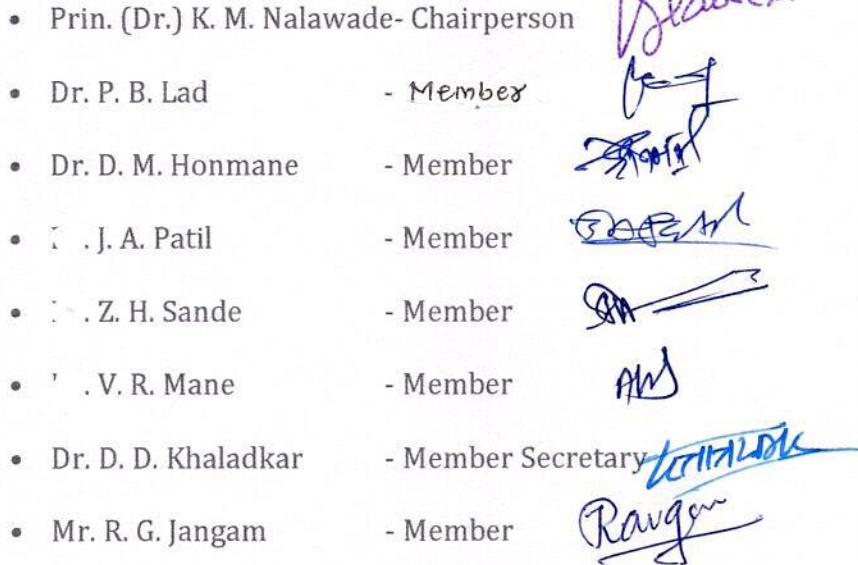 • Prin. (Dr.) K. M. Nalawade- Chairperson
• Dr. P. B. Lad - Member
• Dr. D. M. Honmane - Member
• . J. A. Patil - Member
• . Z. H. Sande - Member
• . V. R. Mane - Member
• Dr. D. D. Khaladkar - Member Secretary
• Mr. R. G. Jangam - Member